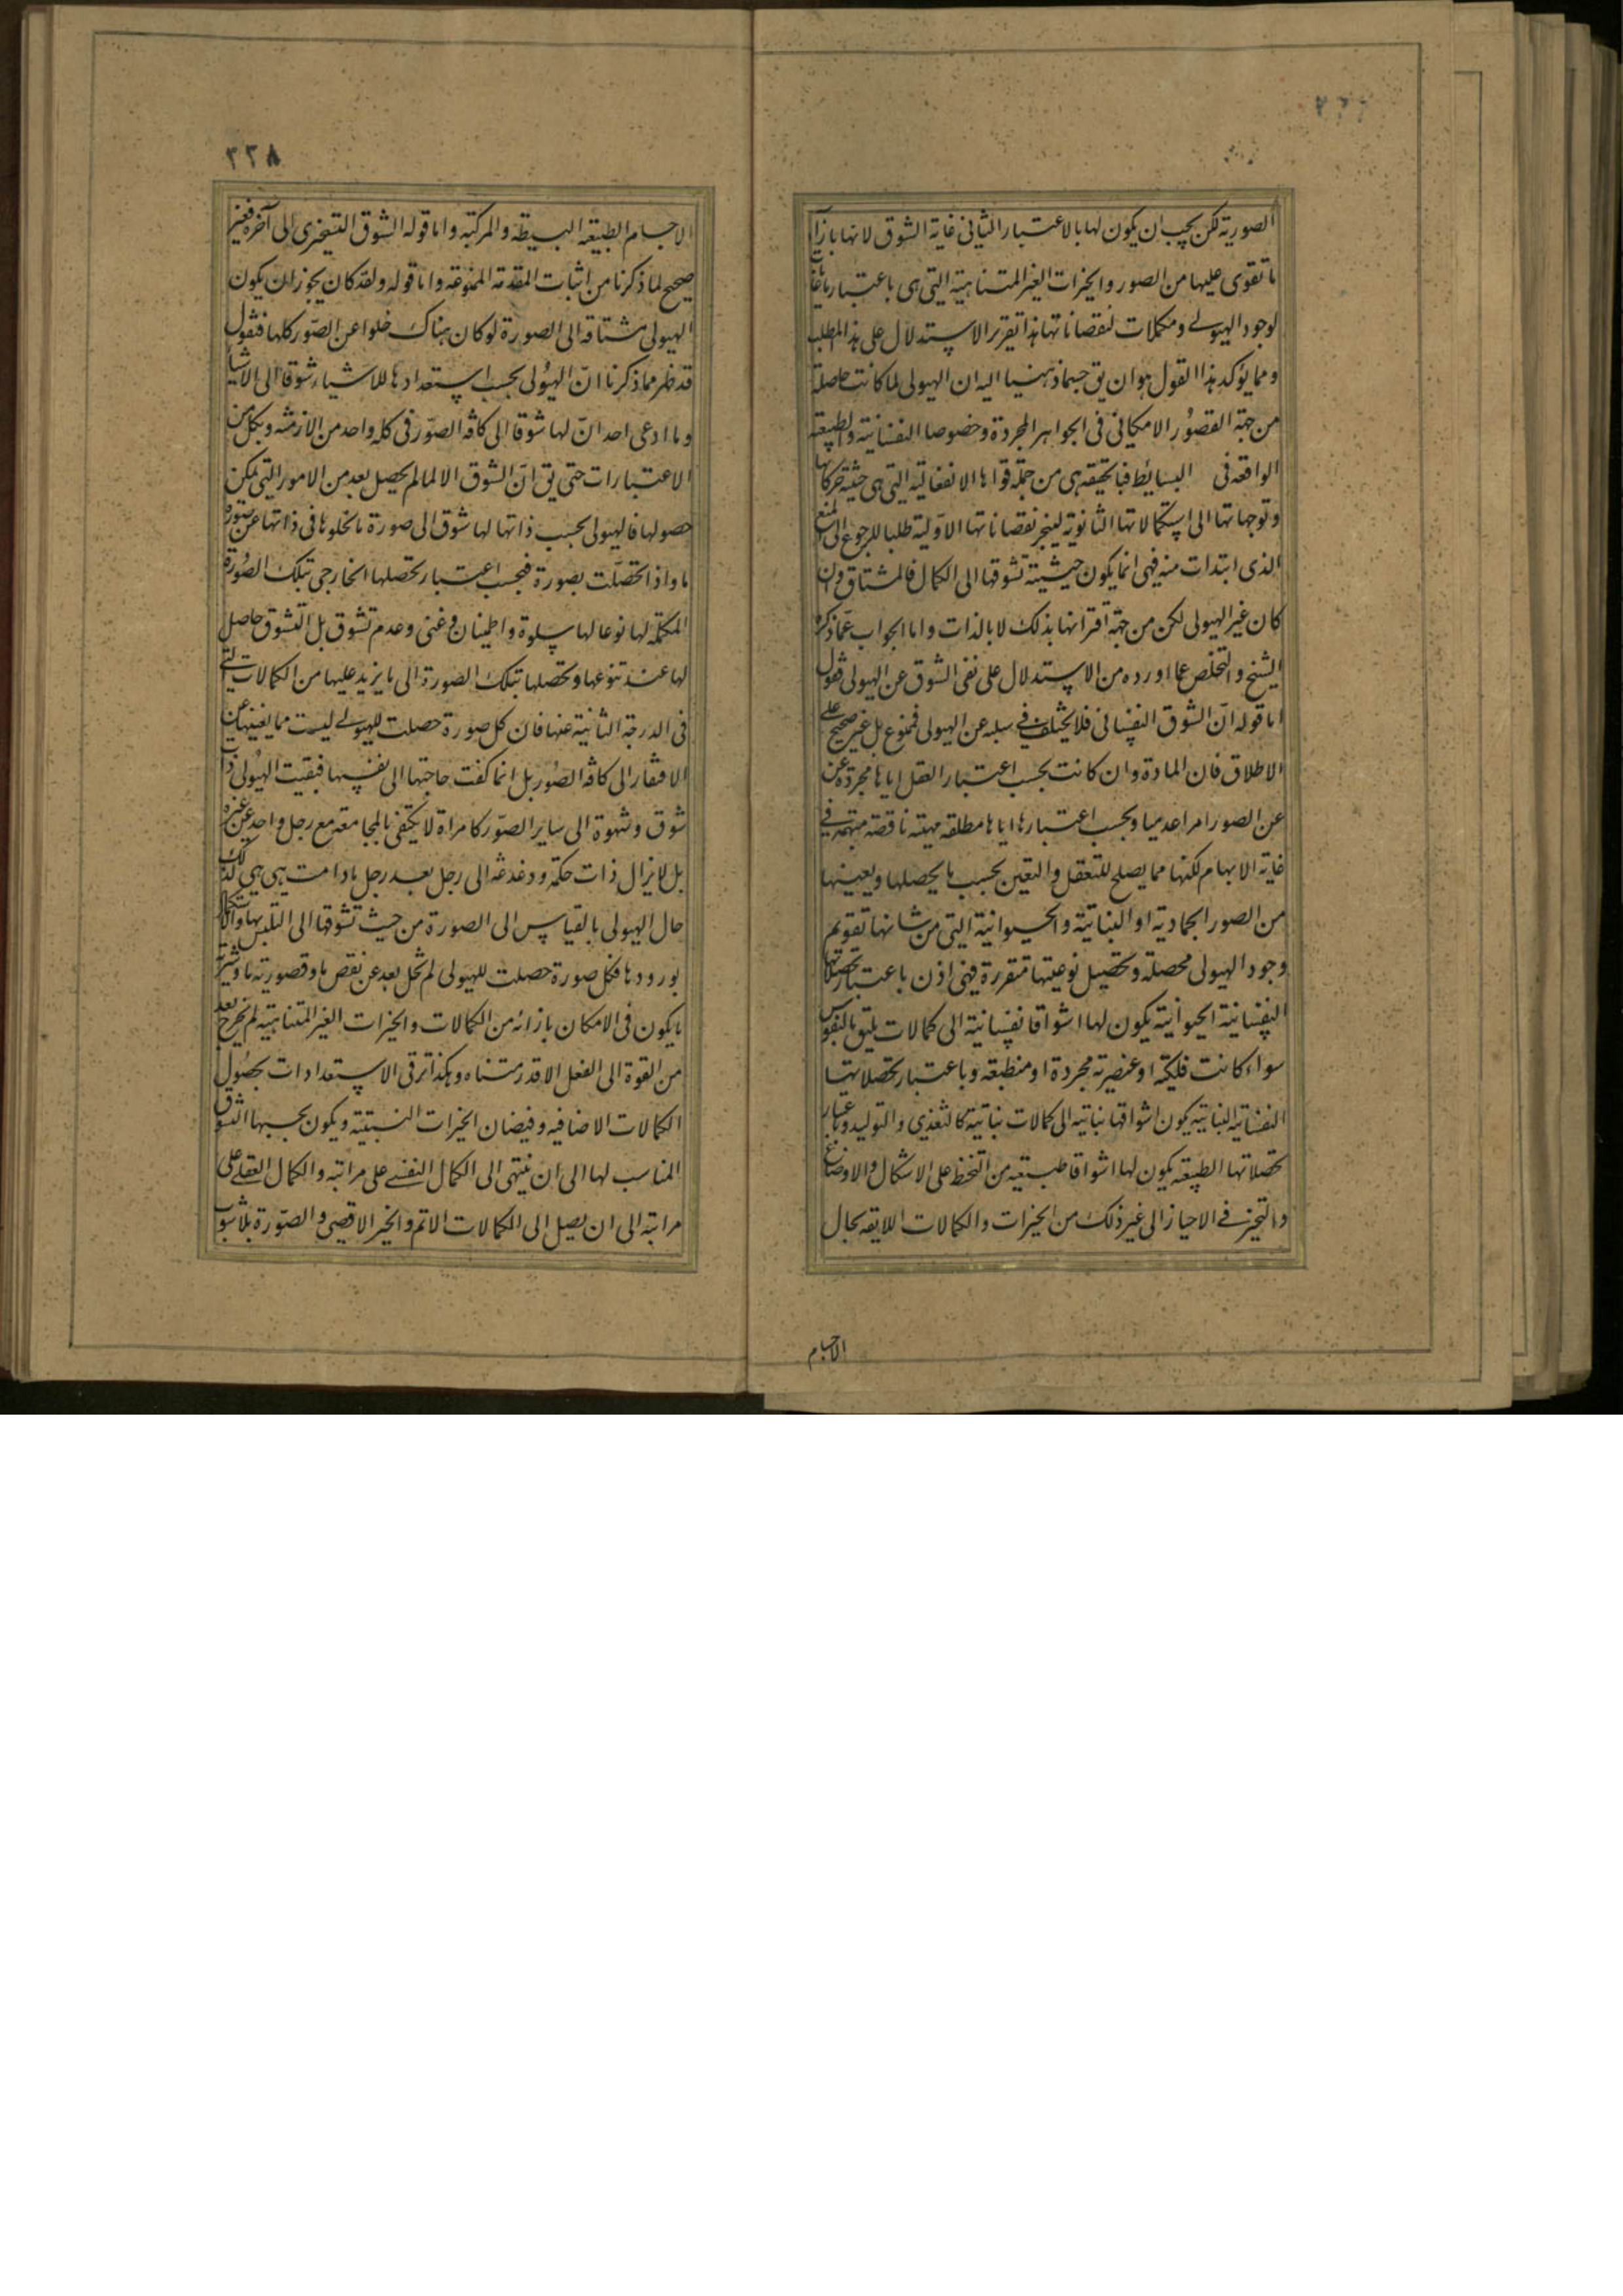 الصورية لكن يجب ان يكون لها بالاعتبار الثانى غاية الشوق لانها بازاء
ما تقوى عليها من الصور والخيرات الغير المتناهية التى هى باعتبار ما غايا
لوجود الهيولى ومكملات لنقصاناتها هذا تقرير الاستدلال على هذا المطلب
ومما يؤكد هذا القول هو ان يق حسبما ذهبنا اليه ان الهيولى لما كانت حاصلة
من جهة القصور الامكانى فى الجواهر المجردة وخصوصا النفسانية والطبيعة
الواقعة فى البسايط فبالحقيقة هى من جملة قواها الانفعالية التى هى حيثية حركاتها
وتوجهاتها الى استكمالاتها الثانوية لينجبر نقصاناتها الاولية طلبا للرجوع الى المنبع
الذى ابتدات منه فهى انما يكون حيثية تشوقها الى الكمال فالمشتاق وان
كان غير الهيولى لكن من جهة اقترانها بذلك لا بالذات واما الجواب عما ذكره
الشيخ والتخلص عما اورده من الاستدلال على نفى الشوق عن الهيولى فنقول
اما قوله ان الشوق النفسانى فلا يختلف فى سلبه عن الهيولى فممنوع بل غير صحيح على
الاطلاق فان المادة وان كانت بحسب اعتبار العقل اياها مجردة عن
عن الصور امرا عدميا وبحسب اعتبارها اياها مطلقة مهية ناقصة مبهمة فى
غاية الابهام لكنها مما يصلح للتعقل والتعين بحسب ما يحصلها ويعينها
من الصور الجمادية او النباتية والحيوانية التى من شانها تقويم
وجود الهيولى محصلة وتحصيل نوعيتها متقررة فهى اذن باعتبار تحصلاتها
النفسانية الحيوانية يكون لها اشواقا نفسانية الى كمالات يليق بالنفوس
سواء كانت فلكية او عنصرية مجردة او منطبعة وباعتبار تحصلاتها
النفسانية النباتية يكون اشواقها نباتية الى كمالات نباتية كالتغذى والتوليد وباعتبار
تحصلاتها الطبيعة يكون لها اشواقا طبيعية من التحفظ على الاشكال والاوضاع
والتحيز فى الاحياز الى غير ذلك من الخيرات والكمالات اللايقة بحال
الاجسام
٢٢٨
الاجسام الطبيعة البسيطة والمركبة واما قوله الشوق التسخيرى الى آخره فغير
صحيح لما ذكرنا من اثبات المقدمة الممنوعة واما قوله ولقد كان يجوز ان يكون
الهيولى مشتاقة الى الصورة لو كان هناك خلوا عن الصور كلها فنقول
قد ظهر مما ذكرنا ان الهيولى بحسب استعدادها للاشياء شوقا الى الاشيا
وما ادعى احد ان لها شوقا الى كافة الصور فى كل واحد من الازمنة وبكل من
الاعتبارات حتى يق ان الشوق الا لما لم يحصل بعد من الامور التى يمكن
حصولها فالهيولى بحسب ذاتها لها شوق الى صورة ما لخلوها فى ذاتها عن صورة
ما واذا تحصلت بصورة فبحسب اعتبار تحصلها الخارجى بتلك الصورة
المكملة لها نوعا لها سلوة واطمينان وغنى وعدم تشوق بل التشوق حاصل
لها عند تنوعها وتحصلها بتلك الصورة الى ما يزيد عليها من الكمالات التى
فى الدرجة الثانية عنها فان كل صورة حصلت للهيولى ليست مما يغنيها عن
الافتقار الى كافة الصور بل انما كفت حاجتها الى نفسها فبقيت الهيولى ذات
شوق وشهوة الى ساير الصور كامراة لا يكتفى بالمجامعة مع رجل واحد عن غيره
بل لا يزال ذات حكة ودغدغة الى رجل بعد رجل ما دامت هى هى كذلك
حال الهيولى بالقياس الى الصورة من حيث تشوقها الى التلبس بها والاستكمال
بورودها فكل صورة حصلت للهيولى لم تخل بعد عن نقص ما وقصورية ما وشرية
ما يكون فى الامكان بازائه من الكمالات والخيرات الغير المتناهية لم يخرج بعد
من القوة الى الفعل الا قدر متناه وهكذا ترقى الاستعدادات بحصول
الكمالات الاضافية وفيضان الخيرات النسبية ويكون بحسبها الشوق
المناسب لها الى ان ينتهى الى الكمال النفسى على مراتبه والكمال العقلى على
مراتبه الى ان يصل الى الكمالات الاتم والخير الاقصى والصورة بلا شوب